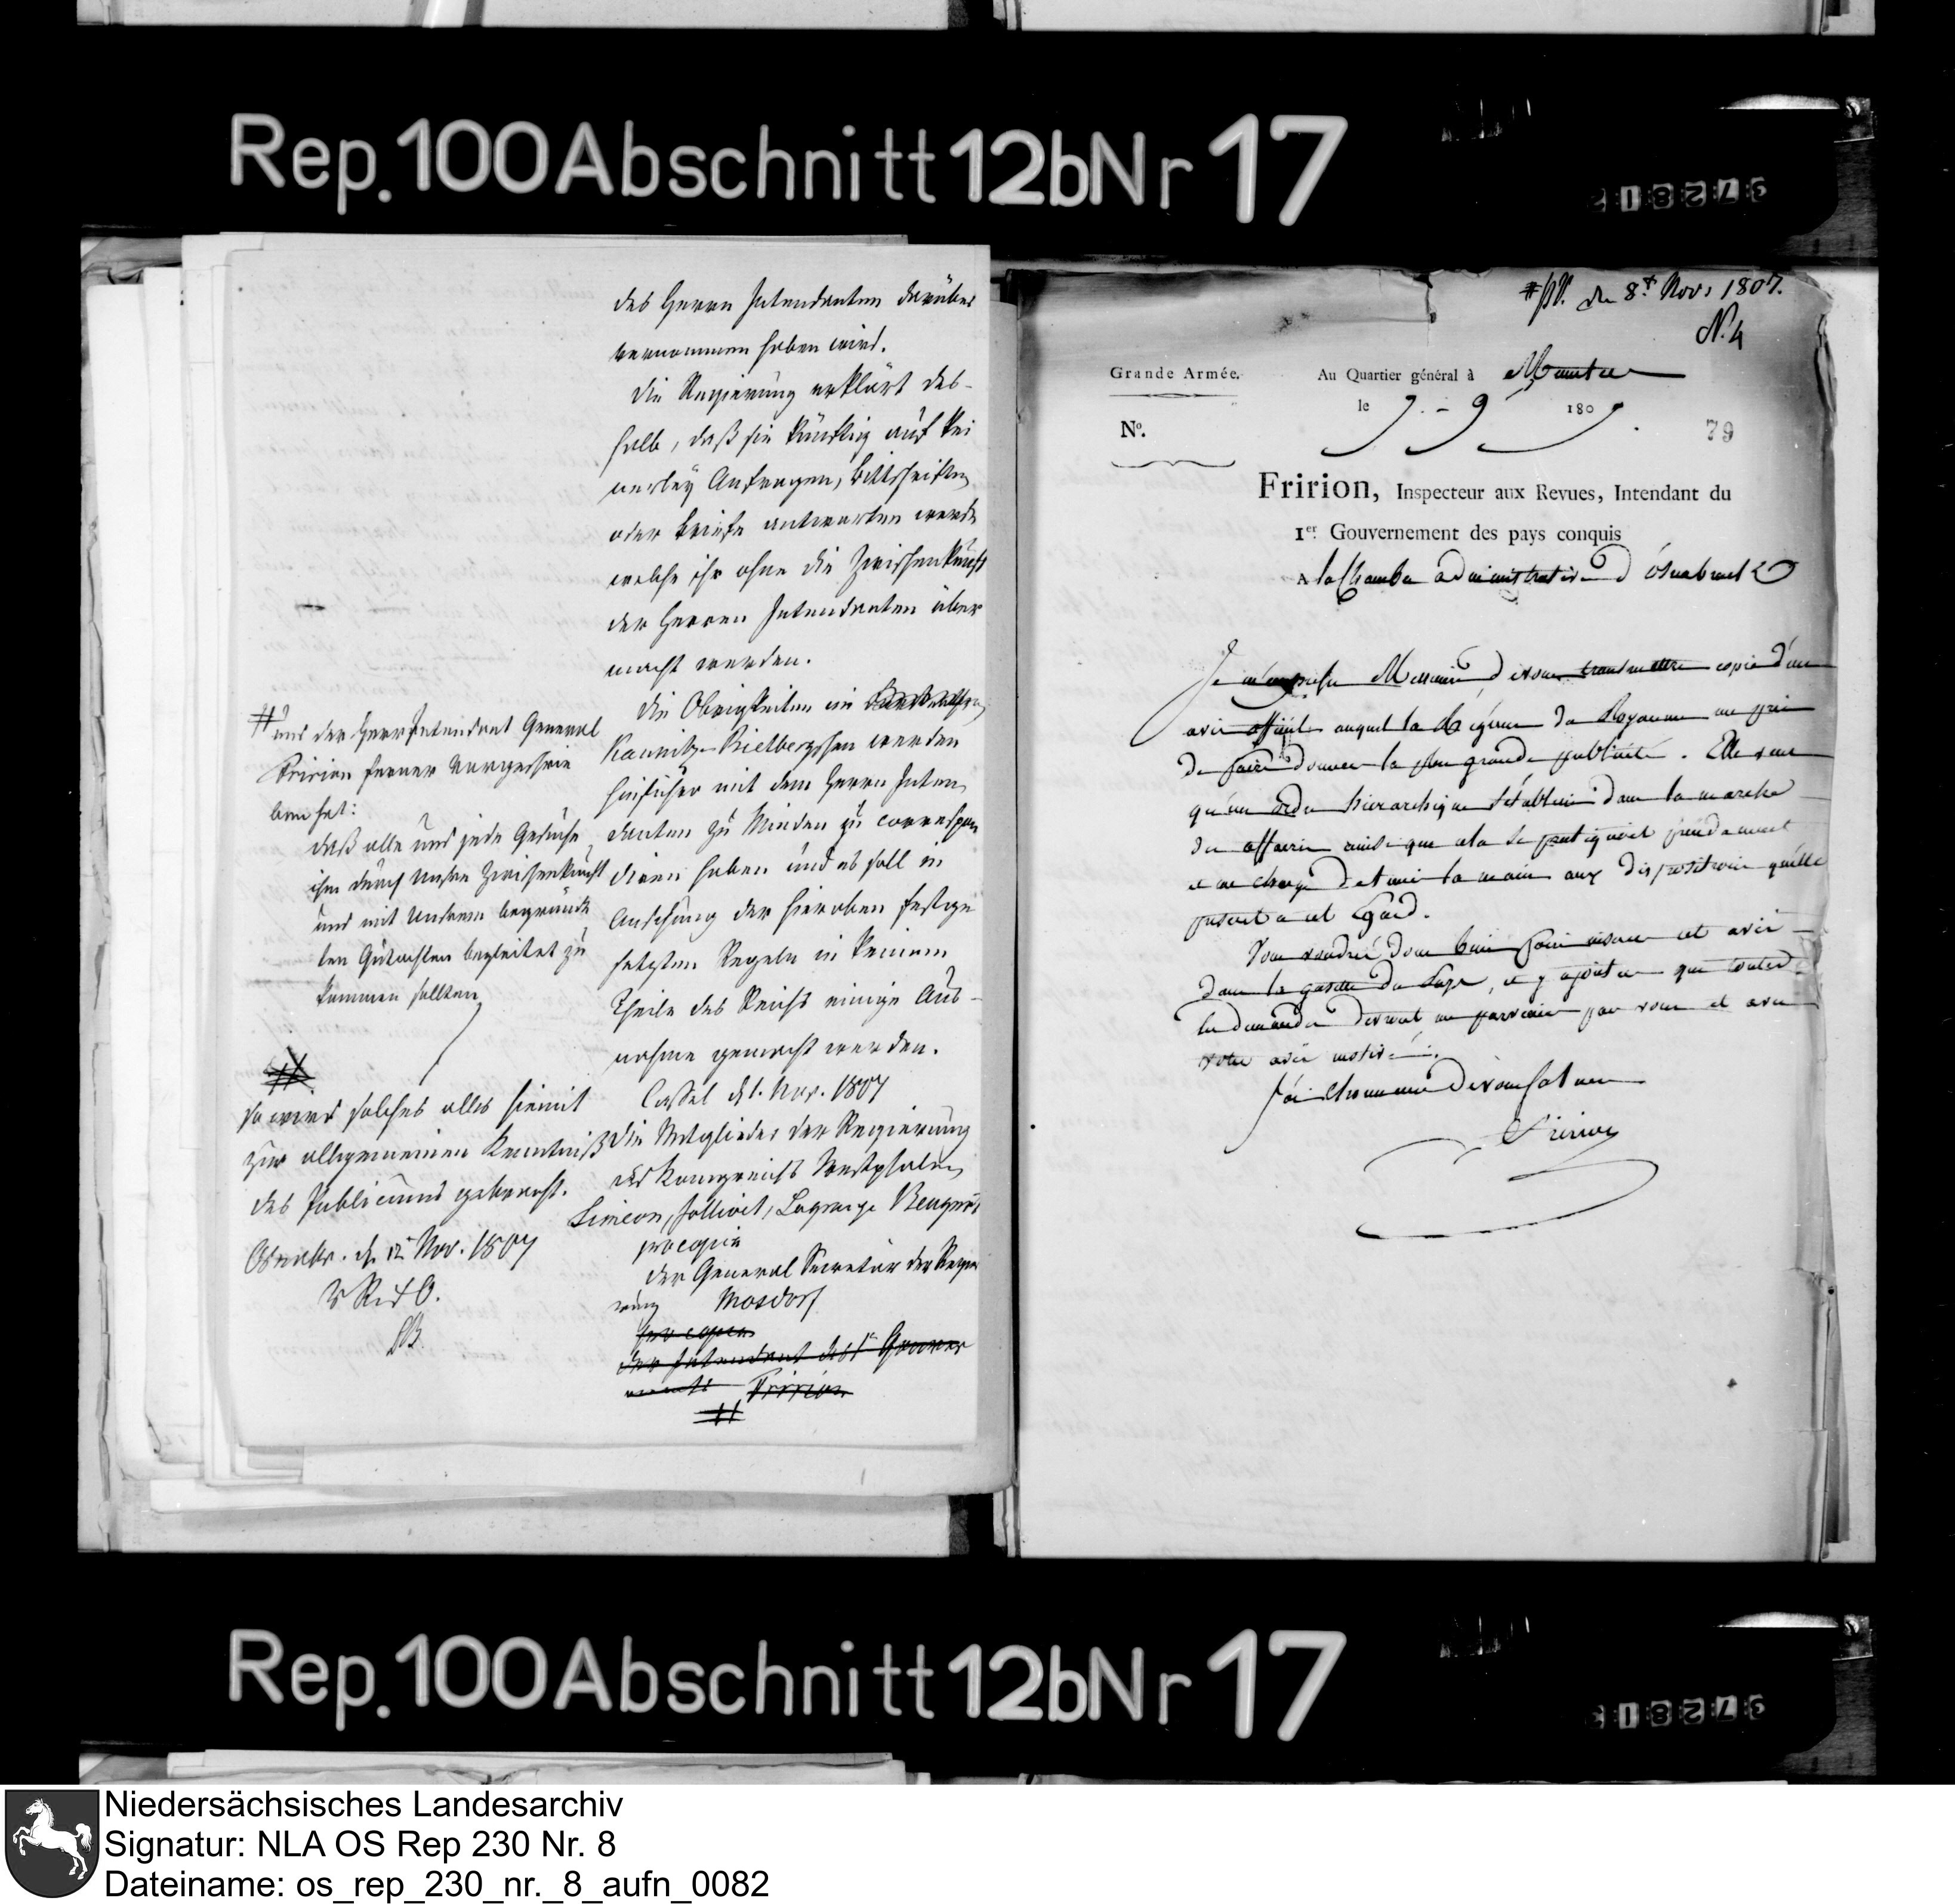 Rep. 100 Abschnitt 12b Nr 17
des Herrn Intendanten darüber
vernommen haben wird.
Die Regierung erklärt des-
halb, daß sie künftig auf kei
nerley Anfragen, Bittschriften
oder Briefe antworten werde
welche ihr ohne die Zwischenkunft
der Herren Intendanten über
macht werden.
Die Obrigkeiten im
Kaunitz-Rietbergschen werden
hinführo mit dem Herrn Inten
danten zu Minden zu correspon
diren haben und es soll in
Ansehung der hieroben festge
setzten Regeln in keinem
Theile des Reichs einige Aus-
nahme gemacht werden.
Cassel d. 1. Nov. 1807
Die Mitglieder der Regierung
des Königreichs Westphalen
Simeon, Jollivet, Lagrange Beugnot
pro copia
der General Secretär der Regie
rung Mosdorf
pro copia
der Intendant des 1n Gouver
nements Fririon
#
# und der Herr Intendant General
Fririon ferner vorgeschrie
ben hat:
daß alle und jede Gesuche
ihm durch unsre Zwischenkunft
und mit unserm begründe
ten Gutachten begleitet zu
kommen sollten
#
so wird solches alles hiemit
zur allgemeinen Kenntniß
des Publicums gebracht.
Osnabr. d. 12 Nov. 1807
den 8t Nov. 1807.
N. 4
Grande Armée.
Au Quartier général à Munster
le 7. - 9 1807.
No.
79
Fririon, Inspecteur aux Revues, Intendant du
1er Gouvernement des pays conquis
A la Chambre administrative d'Osnabruck
Je m'empresse Messieurs de vous transmettre copie d'un
avis officiel auquel la Régence du Royaume me prie
de faire donner la plus grande publicité. Elle veut
qu'un ordre hierarchique s'établisse dans la marche
des affaires ainsi que cela se pratiquait précédemment
et me charge de tenir la main aux dispositions qu'elle
prescrit à cet égard.
Vous voudrez donc bien faire insérer cet avis
dans la gazette du Pays, et y ajouter que toutes
les demandes devront me parvenir par vous et avec
votre avis motivé.
J'ai l'honneur de vous saluer
Fririon
Rep. 100 Abschnitt 12b Nr 17
Niedersächsisches Landesarchiv
Signatur: NLA OS Rep 230 Nr. 8
Dateiname: os_rep_230_nr._8_aufn_0082